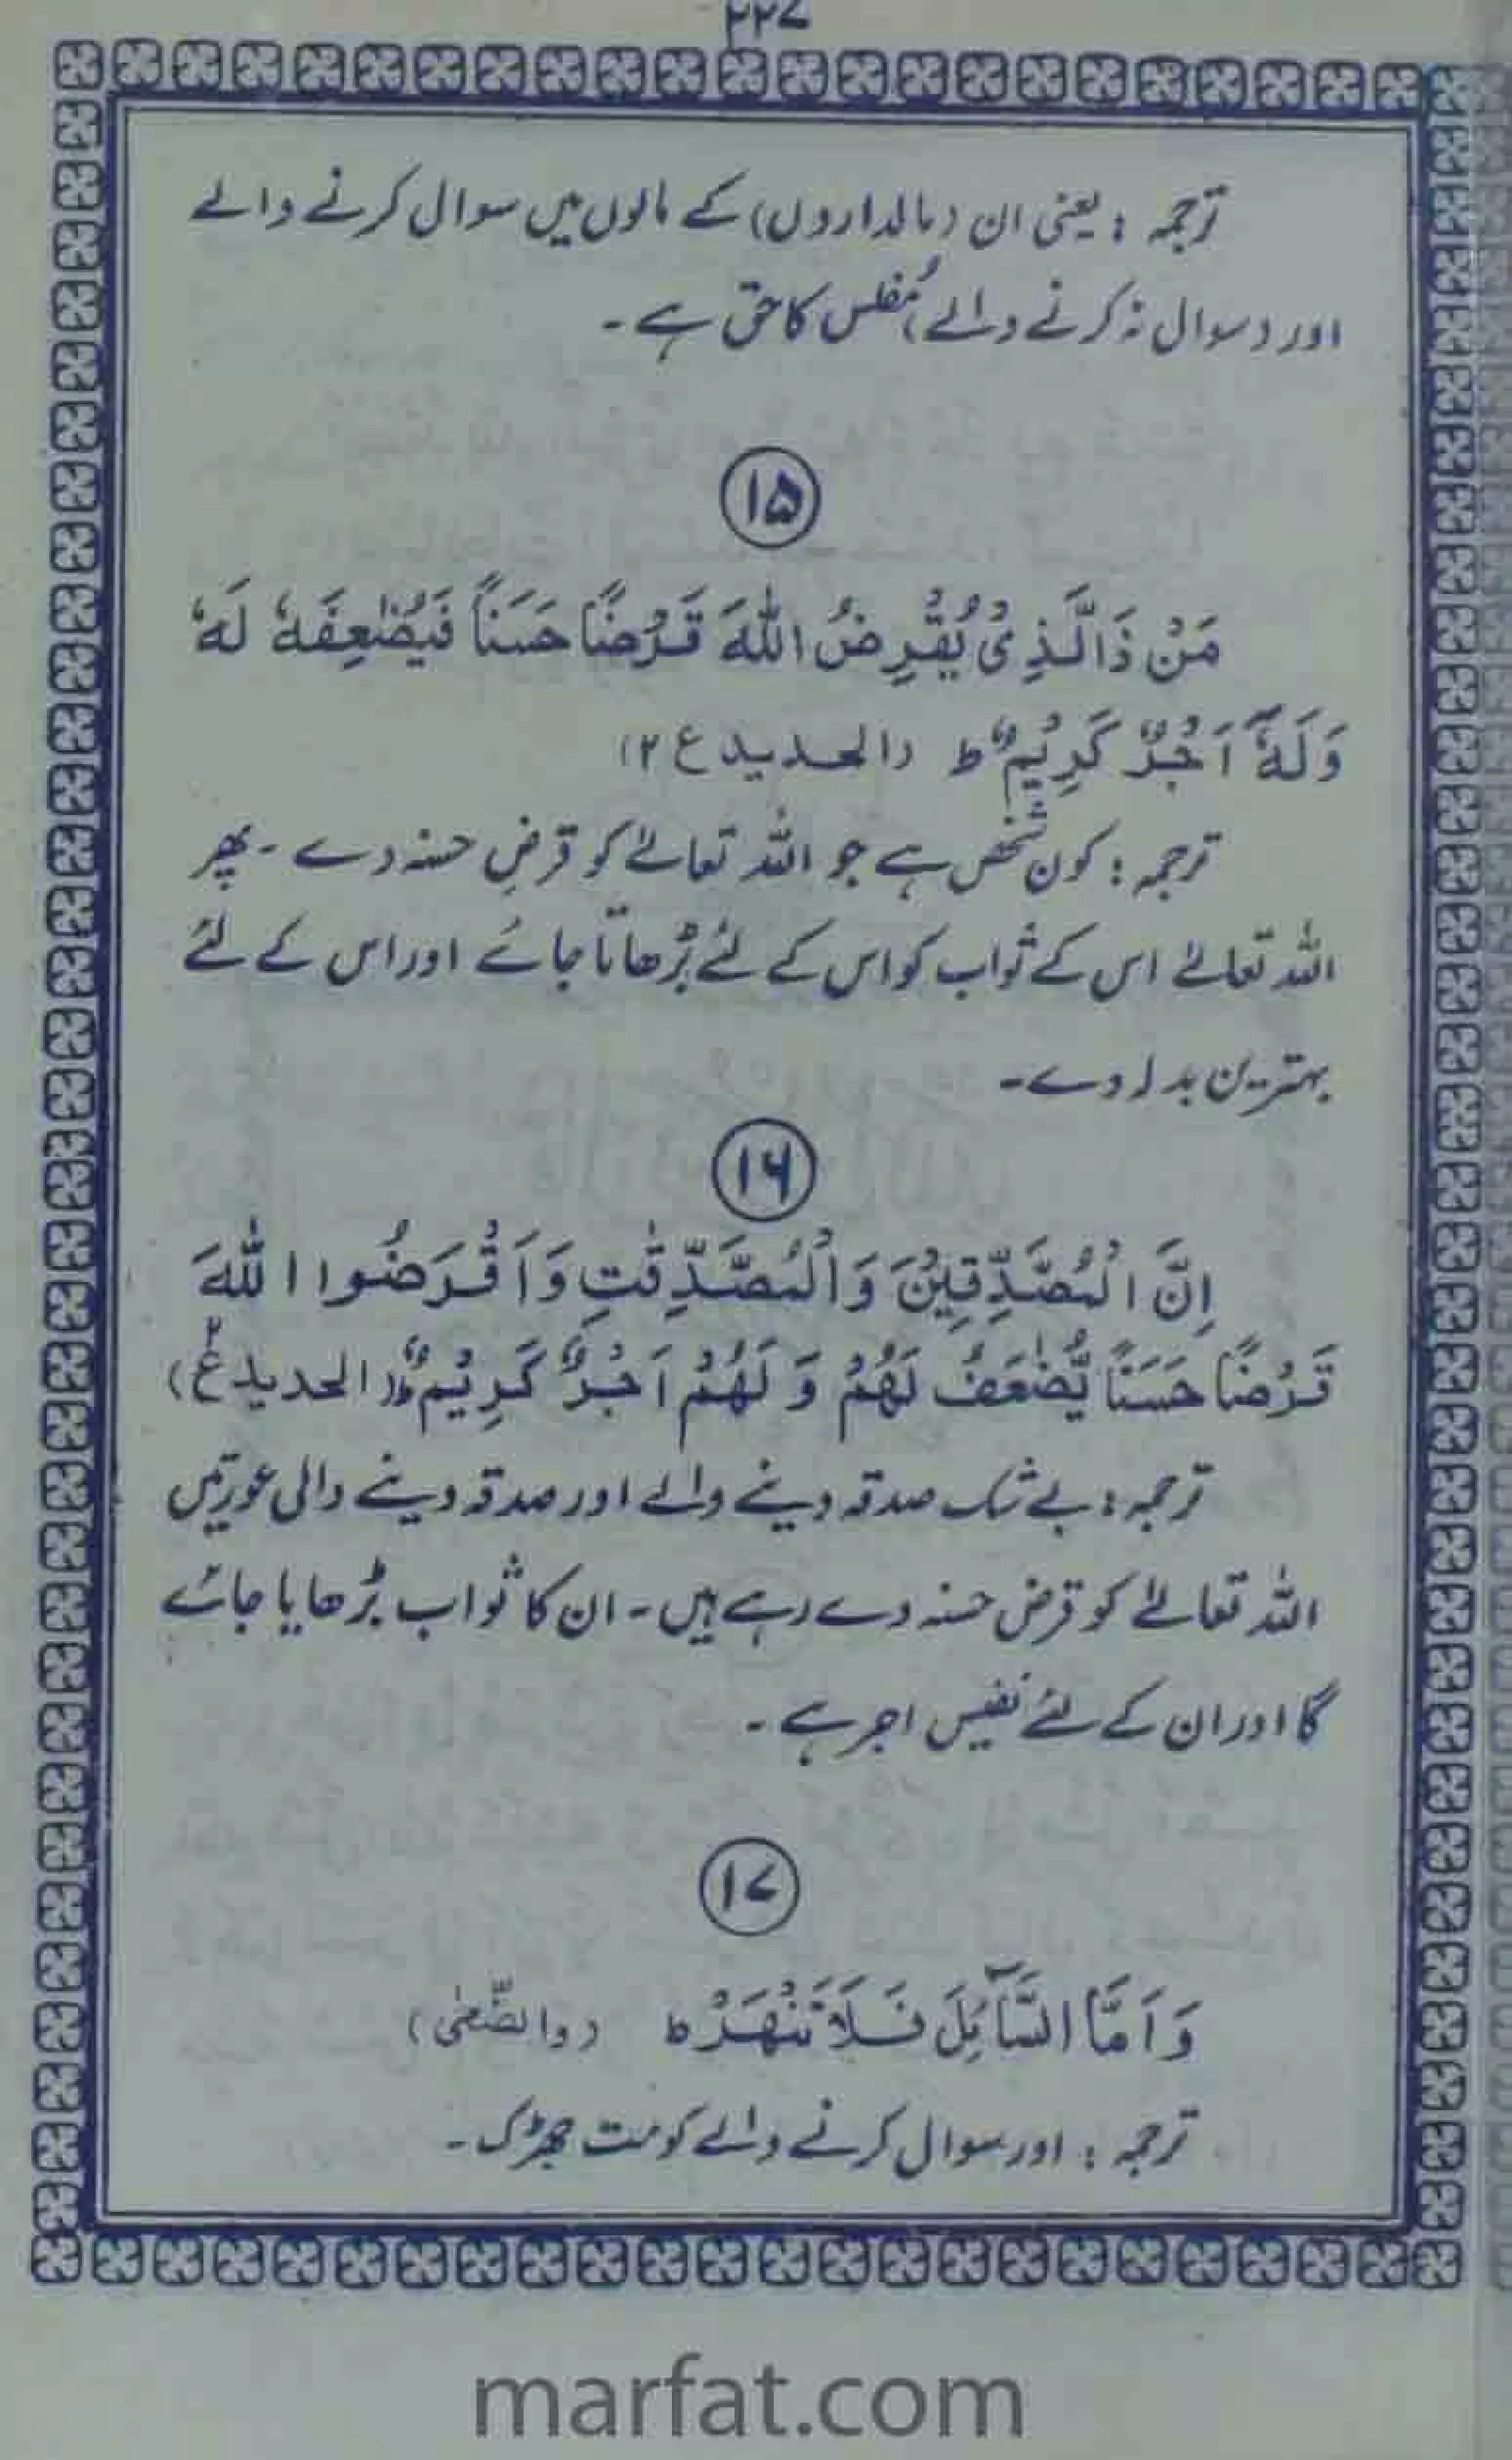 ۲۲۷
ترجمہ : یعنی ان (مالداروں) کے مالوں میں سوال کرنے والے
اور (سوال نہ کرنے والے) مُفلس کا حق ہے ۔
۱۵
مَنْ ذَالَّذِیْ یُقْرِضُ اللّٰهَ قَرْضًا حَسَنًا فَیُضٰعِفَهٗ لَهٗ
وَلَهٗٓ اَجْرٌ كَرِیْمٌ ط (الحدید ع ۲)
ترجمہ : کون شخص ہے جو اللہ تعالےٰ کو قرضِ حسنہ دے ۔ پھر
اللہ تعالےٰ اس کے ثواب کو اس کے لئے بڑھاتا جائے اور اس کے لئے
بہترین بدلہ دے ۔
۱۶
اِنَّ الْمُصَّدِّقِیْنَ وَالْمُصَّدِّقٰتِ وَاَقْرَضُوا اللّٰهَ
قَرْضًا حَسَنًا یُّضٰعَفُ لَهُمْ وَ لَهُمْ اَجْرٌ كَرِیْمٌ ط (الحدید ع ۲)
ترجمہ : بے شک صدقہ دینے والے اور صدقہ دینے والی عورتیں
اللہ تعالےٰ کو قرض حسنہ دے رہے ہیں ۔ ان کا ثواب بڑھایا جائے
گا اور ان کے لئے نفیس اجر ہے ۔
۱۷
وَ اَمَّا السَّآئِلَ فَلَا تَنْهَرْ ط (والضُّحٰی)
ترجمہ : اور سوال کرنے والے کو مت جھڑک ۔
marfat.com